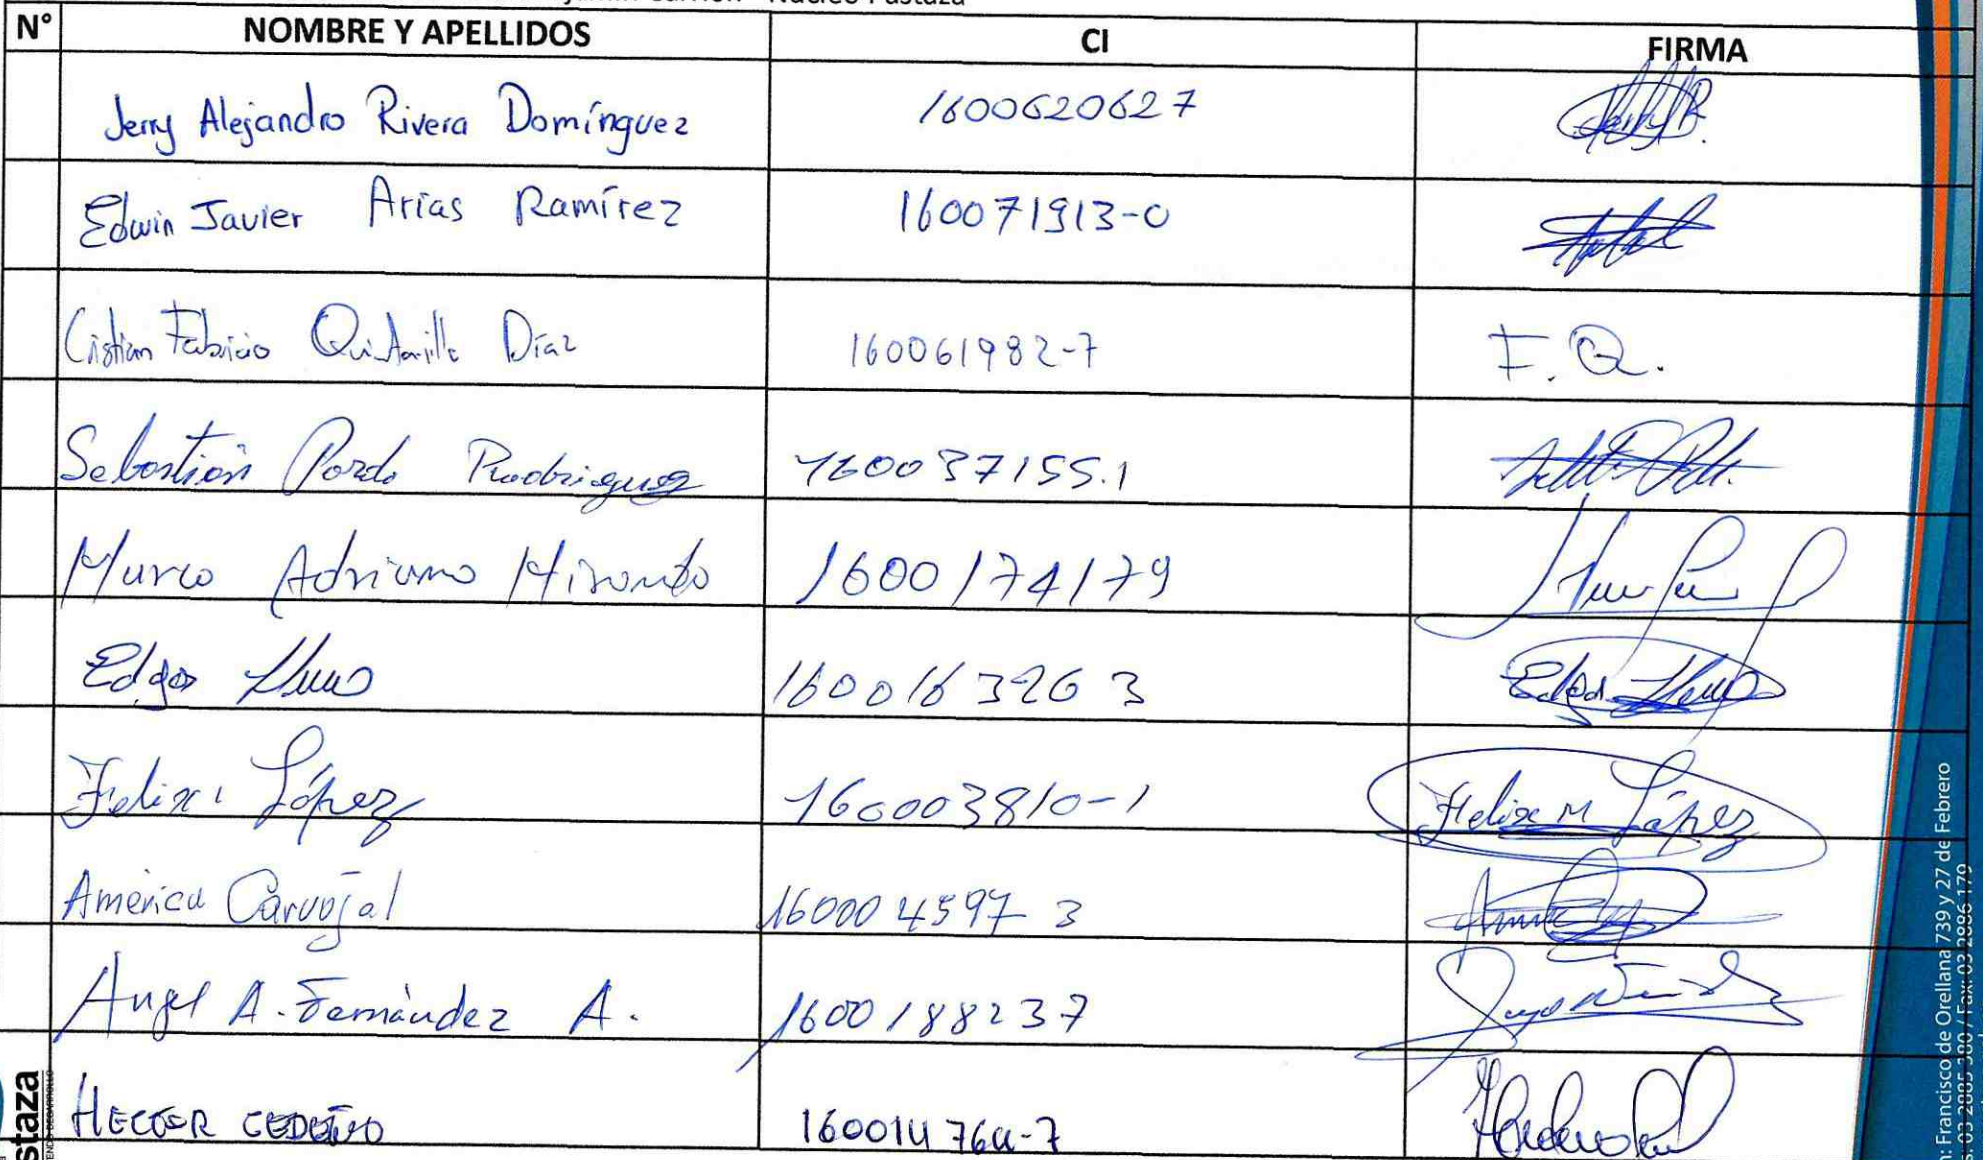 Núcleo Pastaza
N° NOMBRE Y APELLIDOS CI FIRMA
Jerry Alejandro Rivera Domínguez 1600620627
Edwin Javier Arias Ramírez 160071913-0
Cristian Fabricio Quintanilla Díaz 160061982-7 F. Q.
Sebastián Pardo Rodriguez 160037155.1
Marco Adriano Miranda 1600174179
Edgar Llano 1600163263 Edgar Llano
Felix López 160003810-1 Felix M López
América Carvajal 160004597-3
Angel A. Fernández A. 1600188237
HECTOR CEDEÑO 160014764-7
staza
: Francisco de Orellana 739 y 27 de Febrero
03 2885 380 / Fax: 03 2886 179